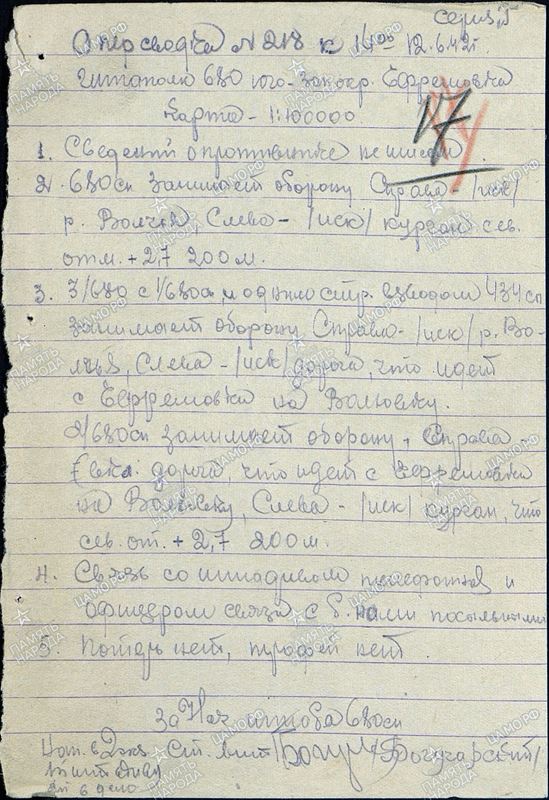 Серия Г
Оперсводка № 218 к 14 00 12.6.42г.
Штаполк 680 юго-зап. окр. Ефремовка
Карта - 1:100000
17
1. Сведений о противнике не имеем.
2. 680сп занимает оборону Справа - /иск/
р. Волчья, Слева - /иск/ курган сев.
отм. +2,7 200 м.
3. 3/680 с 1/680сп и одним стр. взводом 434 сп
занимает оборону Справа - /иск/ р. Во-
лчья, Слева - /иск/ дорога, что идет
с Ефремовка на Волховку.
2/680сп занимает оборону, Справа -
дорога, что идет с Ефремовка
на Слева - /иск/ курган, что
сев. от. +2,7 200 м.
4. Связь со штадивом телефонная и
офицером связи с б-нами посыльными
5. Потерь нет, трофей нет.
За Нач штаба 680сп
Нап. в 2 экз. Ст. лит /Бочарский/
в штадив
в дело
ПАМЯТЬ НАРОДА
ЦАМО.РФ